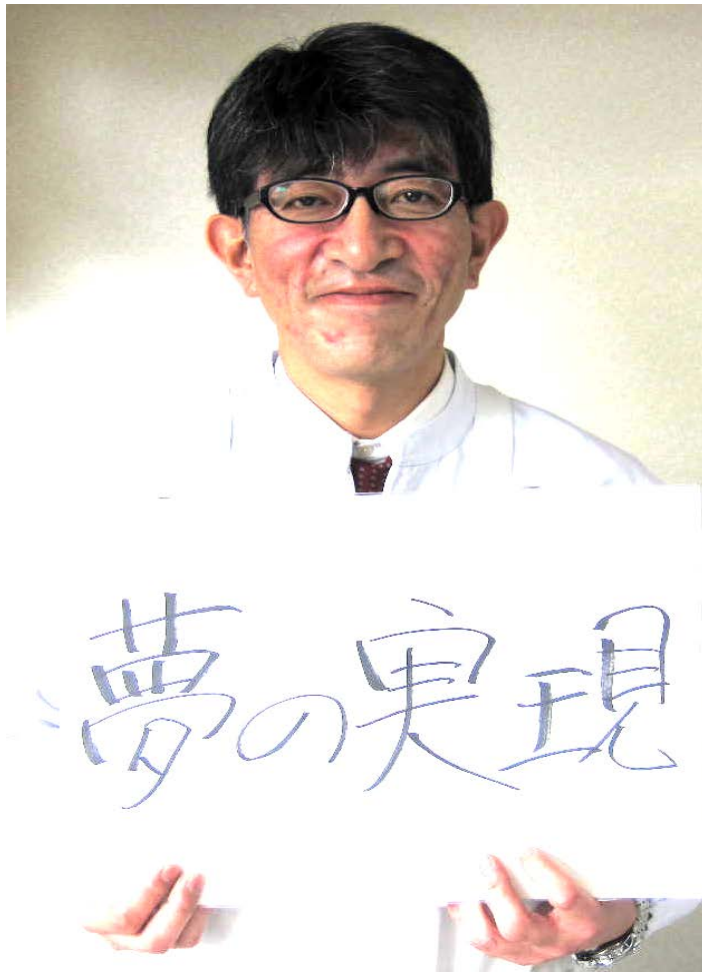 夢の実現